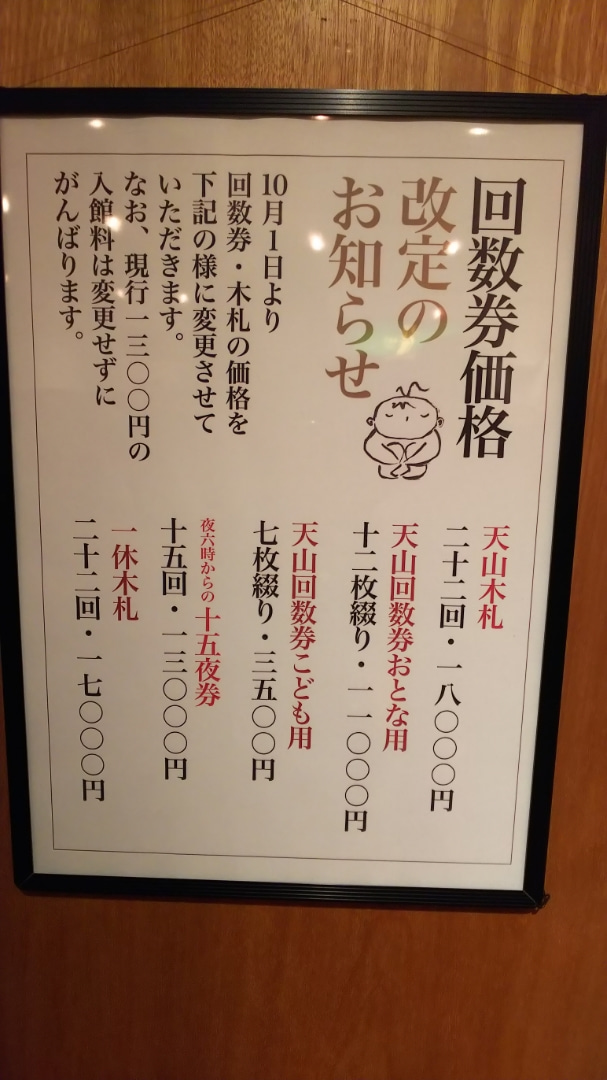 回数券価格
改定の
お知らせ
10月1日より
回数券・木札の価格を
下記の様に変更させて
いただきます。
なお、現行一三〇〇円の
入館料は変更せずに
がんばります。
天山木札
二十二回・一八〇〇〇円
天山回数券おとな用
十二枚綴り・一一〇〇〇円
天山回数券こども用
七枚綴り・三五〇〇円
夜六時からの十五夜券
十五回・一三〇〇〇円
一休木札
二十二回・一七〇〇〇円